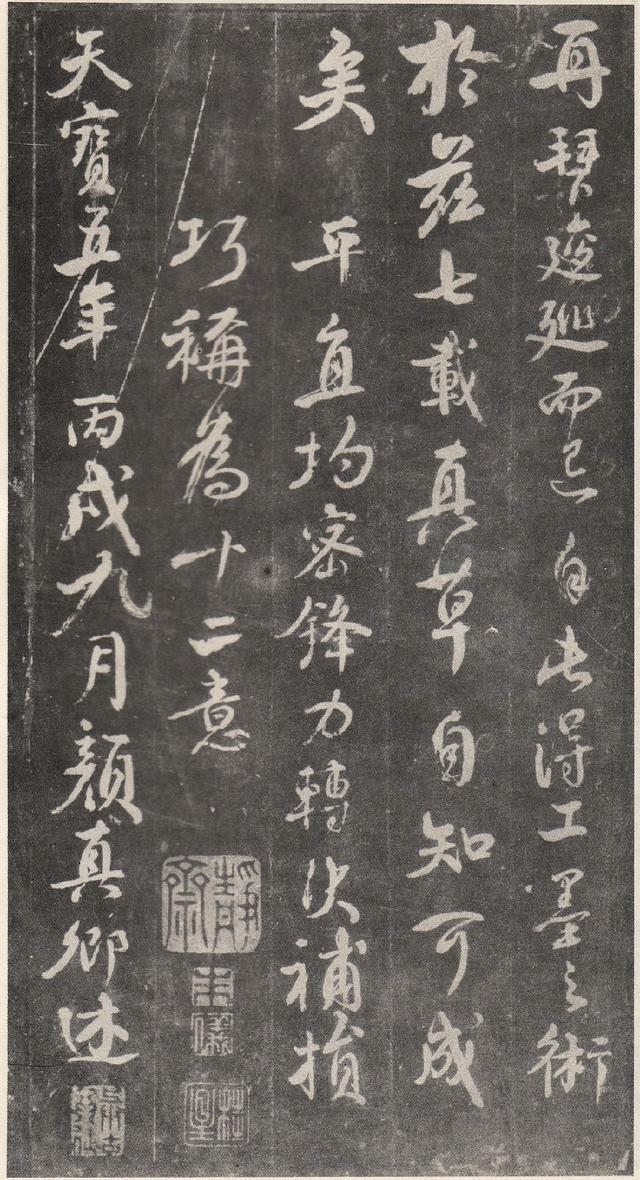 再拜逡廵而已自此得工墨之術
於茲七載真草自知可成
矣 平直均密鋒力轉決補損
巧稱為十二意
靜齋
天寶五年丙戌九月顏真卿述